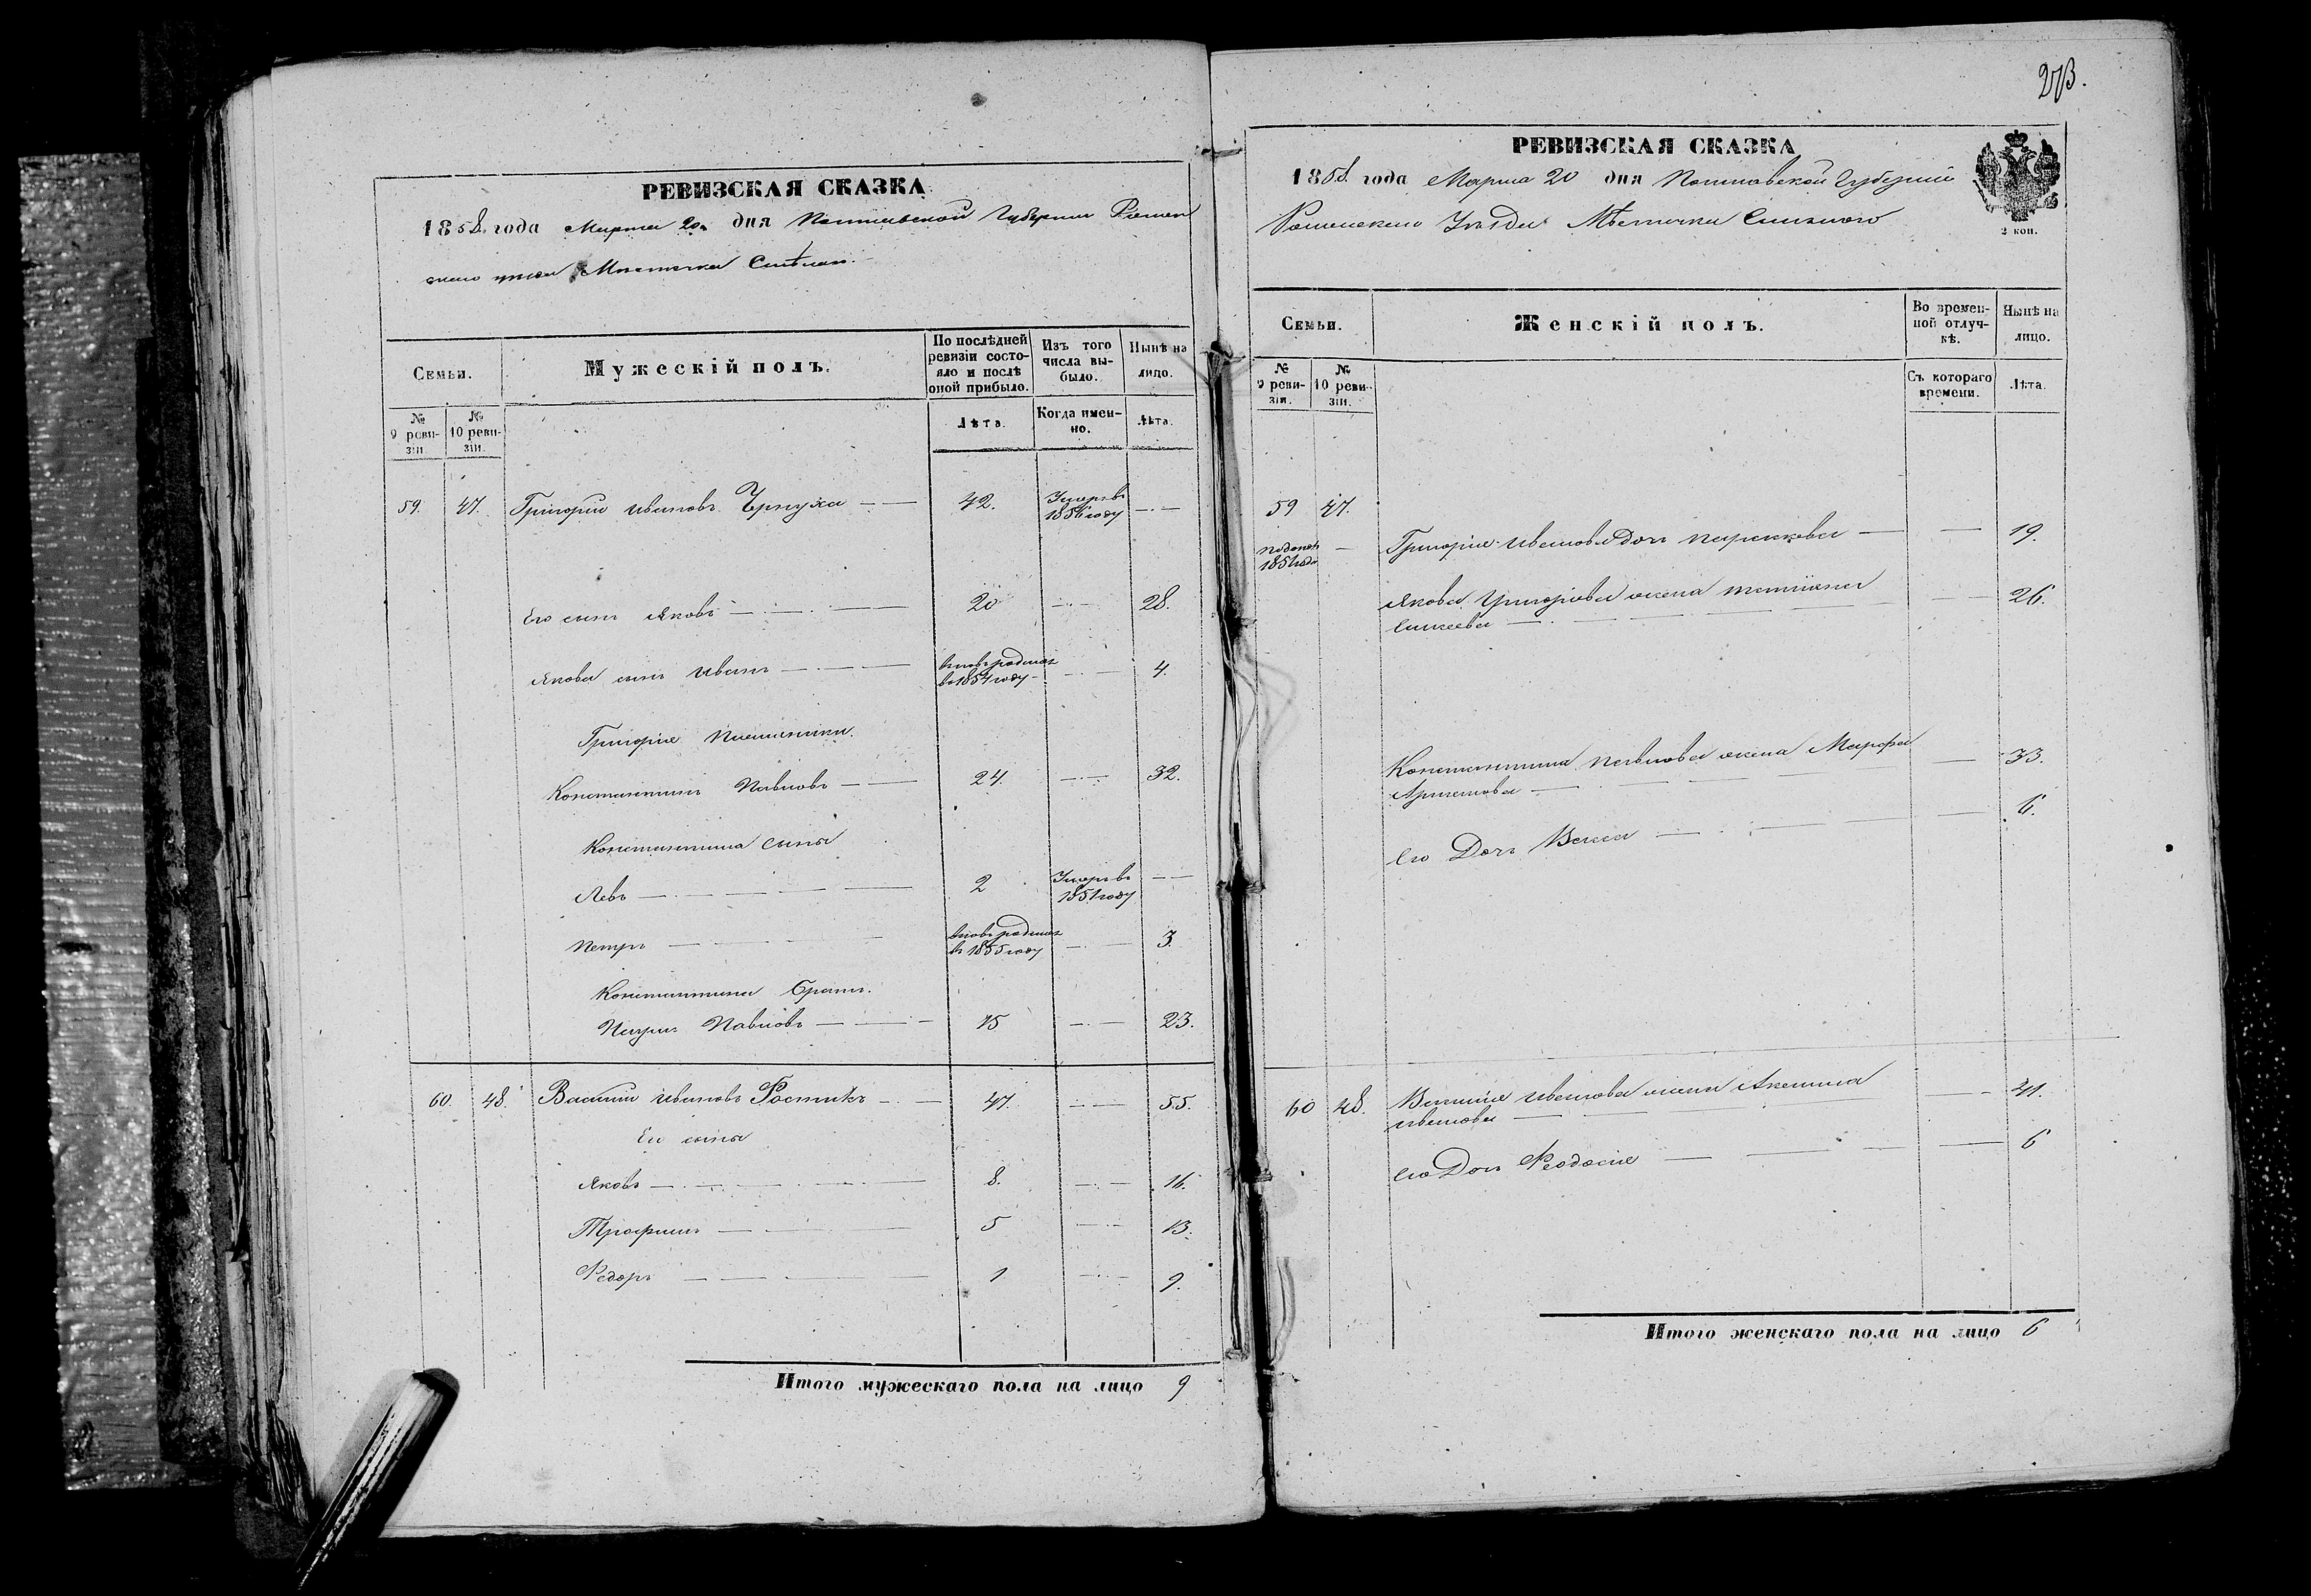 273.
РЕВИЗСКАЯ СКАЗКА
1858 года Марта 20 дня Полтавской Губернии Ромен
скаго уезда Местечка Смелаго
Семьи.
Мужескій полъ.
По послѣдней ревизіи состо-
яло и послѣ
оной прибыло.
Изъ того
числа вы-
было.
Нынѣ на
лицо.
№
9 реви-
зіи
№
10 реви-
зіи.
Лѣта.
Когда имен-
но.
Лѣта.
59. 47. Григорій Ивановъ Чрпуха 42. Умеръ въ
1856 году
Его сынъ Яковъ 20 28.
Якова сынъ Иванъ вновь родился
въ 1854 году 4.
Григорія племянники
Константинъ Павловъ 24 32.
Константина сыны
Левъ 2 Умеръ въ
1851 году
Петръ вновь родился
въ 1855 году 3.
Константина братъ
Павловъ 15 23.
60. 48. Василій Ивановъ 47. 55.
Его сыны
Яковъ 8. 16.
Трофимъ 5 13.
Федоръ 1 9.
Итого мужескаго пола на лицо 9
РЕВИЗСКАЯ СКАЗКА
1858 года Марта 20 дня Полтавской Губерніи
Роменскаго Уѣзда Мѣстечка Смѣлаго
2 коп.
Семьи.
Женскій полъ.
Во времен-
ной отлуч-
кѣ.
Нынѣ на
лицо.
№
9 реви-
зіи.
№
10 реви-
зіи.
Съ котораго
времени.
Лѣта.
59 47.
1851 года Григорія Иванова дочь Парасковья 19.
Якова Григорьева жена Татіяна 26.
Константина Павлова жена Марфа 33.
его дочь 6.
60 48. Василія Иванова жена Акилина 41.
Иванова
его дочь Феодосія 6
Итого женскаго пола на лицо 6